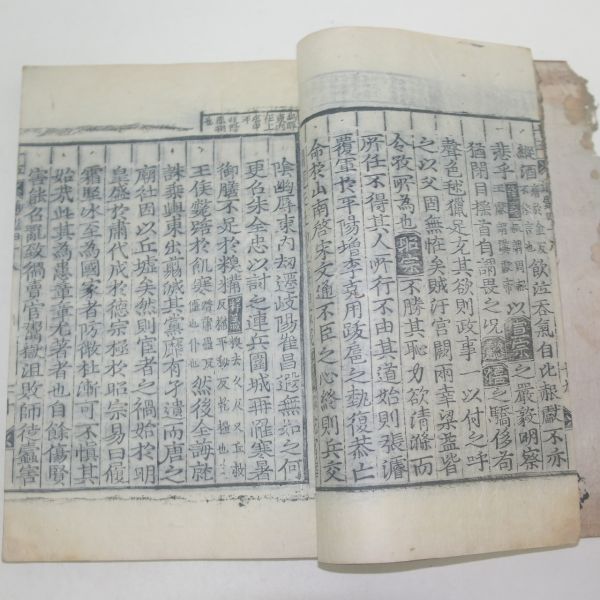 縱酒飲泣吞氣自比赧獻不亦
悲乎以宣宗之嚴毅明察
猶閉目搖首自謂畏之況懿僖之驕侈苟
聲色毬獵足充其欲則政事一以付之呼
之以父固無怪矣賊汙宮闕兩幸梁益皆
令孜所為也昭宗不勝其恥力欲清滌而
所任不得其人所行不由其道始則張濬
覆軍於平陽增李克用跋扈之勢復恭亡
命於山南啓宋文通不臣之心終則兵交
陰幽辱東內劫遷岐陽崔昌遐無如之何
更召朱全忠以討之連兵圍城再罹寒暑
御膳不足於糗糒
王侯斃踣於飢寒然後全誨就
誅乘輿東出翦滅其黨靡有孑遺而唐之
廟社因以丘墟矣然則宦者之禍始於明
皇盛於肅代成於德宗極於昭宗易曰履
霜堅冰至為國家者防微杜漸可不慎其
始哉此其為患章章尤著者也自餘傷賢
害能召亂致禍賣官鬻獄沮敗師徒蠹害